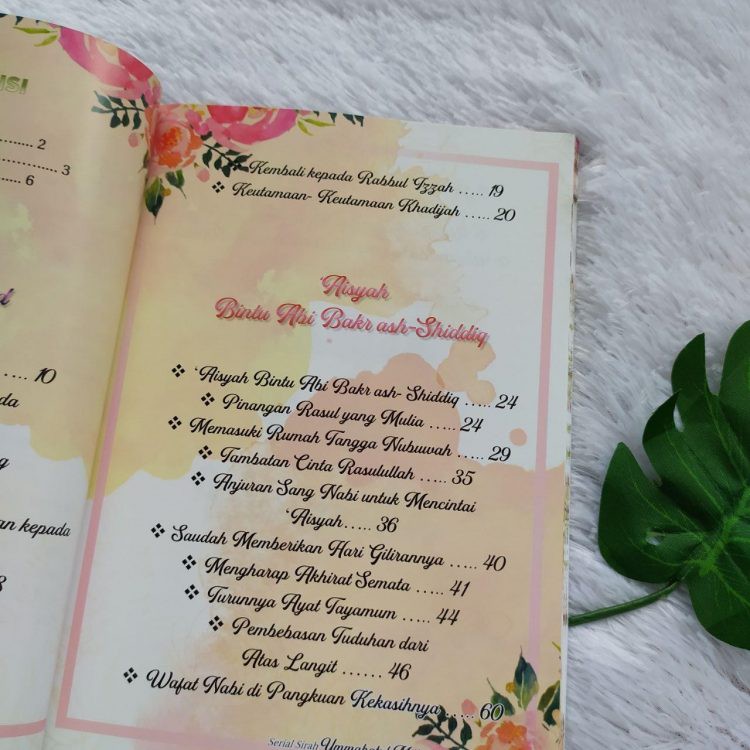 ISI
........ 2
........ 3
........ 6
..... 10
an kepada
Kembali kepada Rabbul Izzah ..... 19
❖ Keutamaan- Keutamaan Khadijah ..... 20
'Aisyah
Bintu Abi Bakr ash-Shiddiq
❖ 'Aisyah Bintu Abi Bakr ash- Shiddiq ..... 24
❖ Pinangan Rasul yang Mulia ..... 24
❖ Memasuki Rumah Tangga Nubuwah ..... 29
❖ Tambatan Cinta Rasulullah ..... 35
❖ Anjuran Sang Nabi untuk Mencintai
'Aisyah..... 36
❖ Saudah Memberikan Hari Gilirannya ..... 40
❖ Mengharap Akhirat Semata ..... 41
❖ Turunnya Ayat Tayamum ..... 44
❖ Pembebasan Tuduhan dari
Atas Langit ...... 46
❖ Wafat Nabi di Pangkuan Kekasihnya ..... 60
Serial Sirah